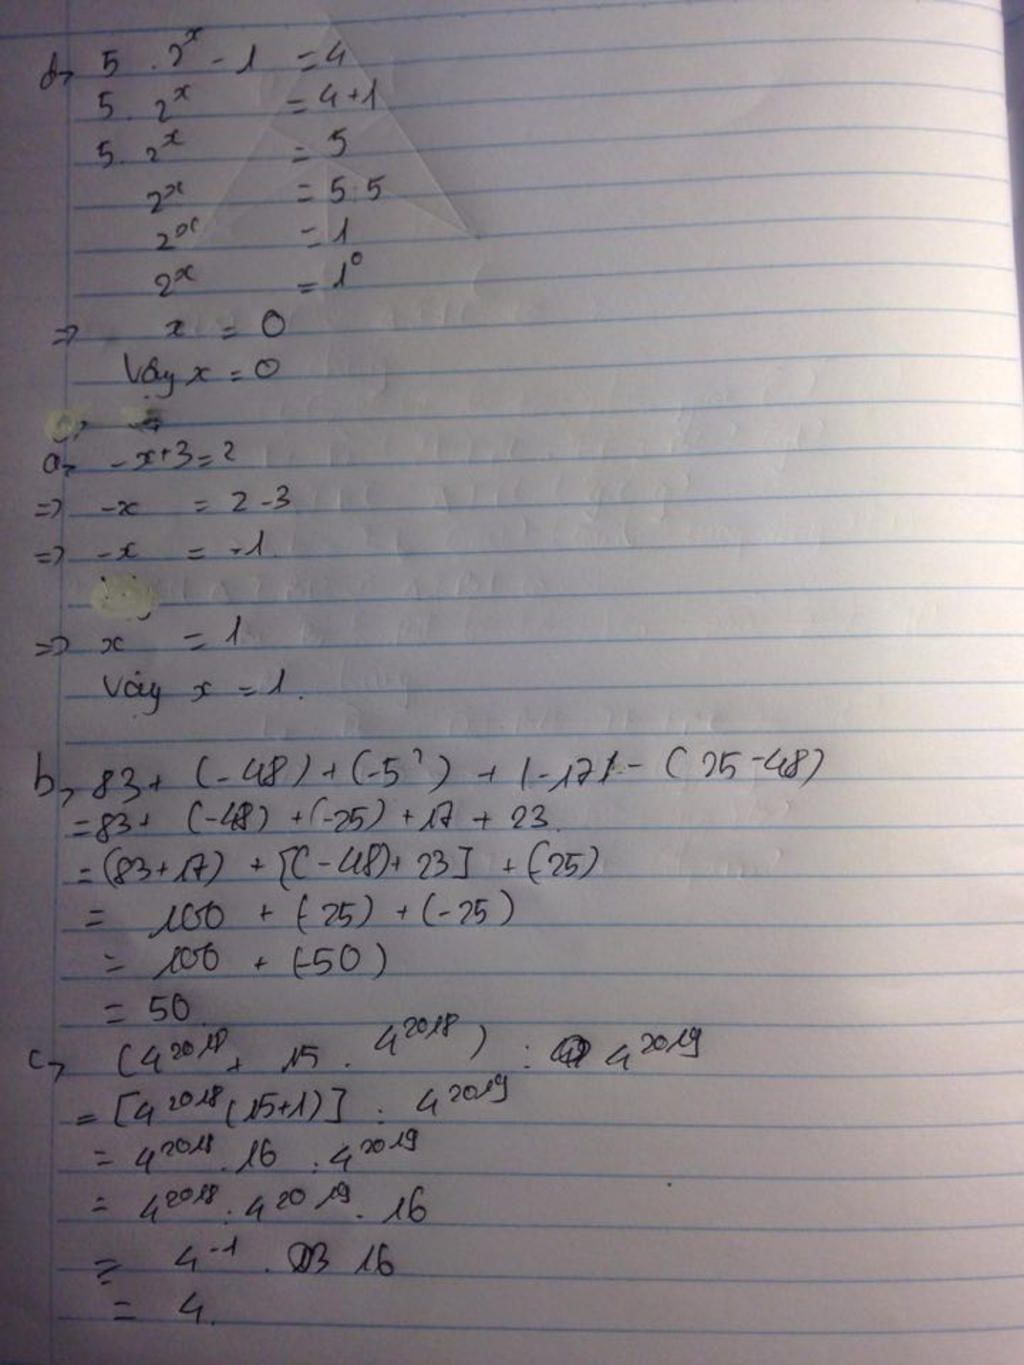 d, 5 . 2^x - 1 = 4
5 . 2^x = 4+1
5. 2^x = 5
2^x = 5:5
2^x = 1
2^x = 1^0
=> x = 0
Vậy x = 0
a, -x+3=2
=> -x = 2-3
=> -x = -1
=> x = 1
Vậy x = 1.
b, 83+ (-48) + (-5²) + |-17| - (25-48)
=83+ (-48) +(-25) +17 + 23
=(83+17) + [(-48)+23] + (-25)
= 100 + (-25) + (-25)
= 100 + (-50)
= 50
c, (4^2018 + 15 . 4^2018) : 4^2019
= [4^2018 (15+1)] : 4^2019
= 4^2018 . 16 : 4^2019
= 4^2018 : 4^2019 . 16
= 4^-1 . 16
= 4.